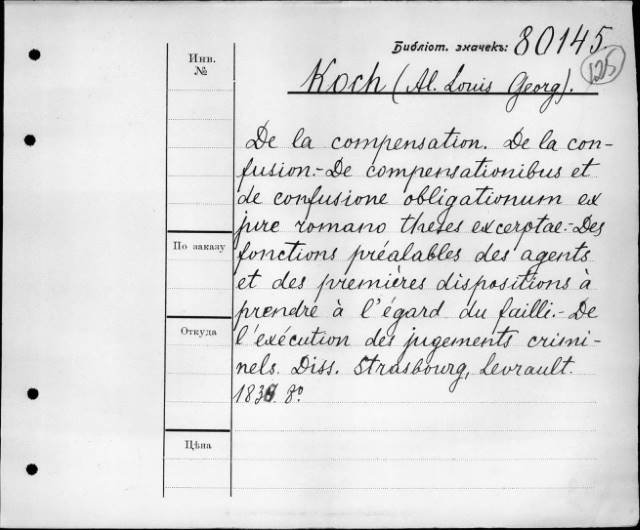 Библіот. значекъ: 80145
125
Инв.
№
Koch (Al. Louis Georg).
De la compensation. De la con-
fusion.- De compensationibus et
de confusione obligationum ex
jure romano theses excerptae.- Des
По заказу
fonctions préalables des agents
et des premières dispositions à
prendre à l'égard du failli.- De
Откуда
l'exécution des jugements crimi-
nels. Diss. Strasbourg, Levrault.
8º
Цѣна